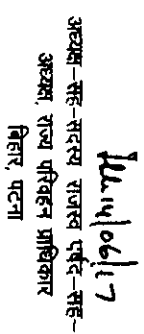 14/06/17
अध्यक्ष–सह–सदस्य राजस्व पर्षद–सह–
अध्यक्ष, राज्य परिवहन प्राधिकार
बिहार, पटना